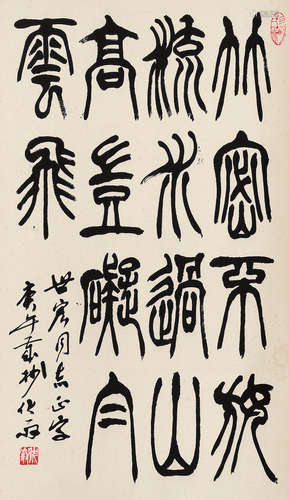 竹密不妨
流水過山
高豈礙白
雲飛
世宏同志正字
庚午歲杪